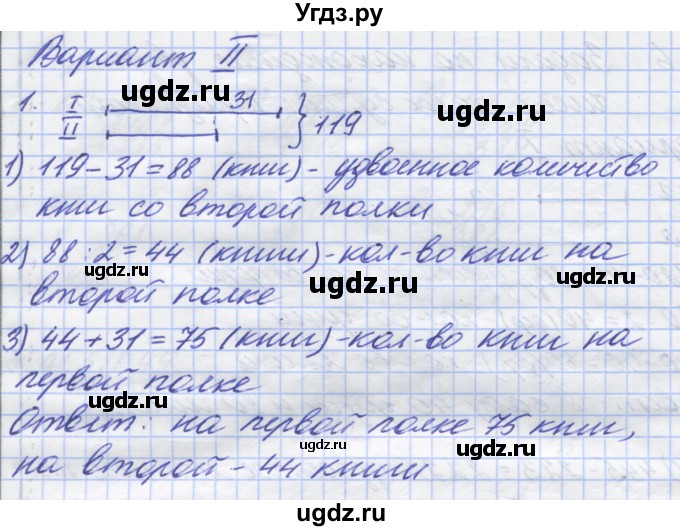 Угдз.ру
Вариант II
ugdz.ru
1. I 31
II } 119
ugdz.ru ugdz.ru
1) 119 - 31 = 88 (книг) - удвоенное количество
книг со второй полки
ugdz.ru
2) 88 : 2 = 44 (книги) - кол-во книг на
ugdz.ru ugdz.ru
второй полке
ugdz.ru
3) 44 + 31 = 75 (книг) - кол-во книг на
первой полке
ugdz.ru ugdz.ru
Ответ: на первой полке 75 книг,
ugdz.ru
на второй - 44 книги
ugdz.ru ugdz.ru